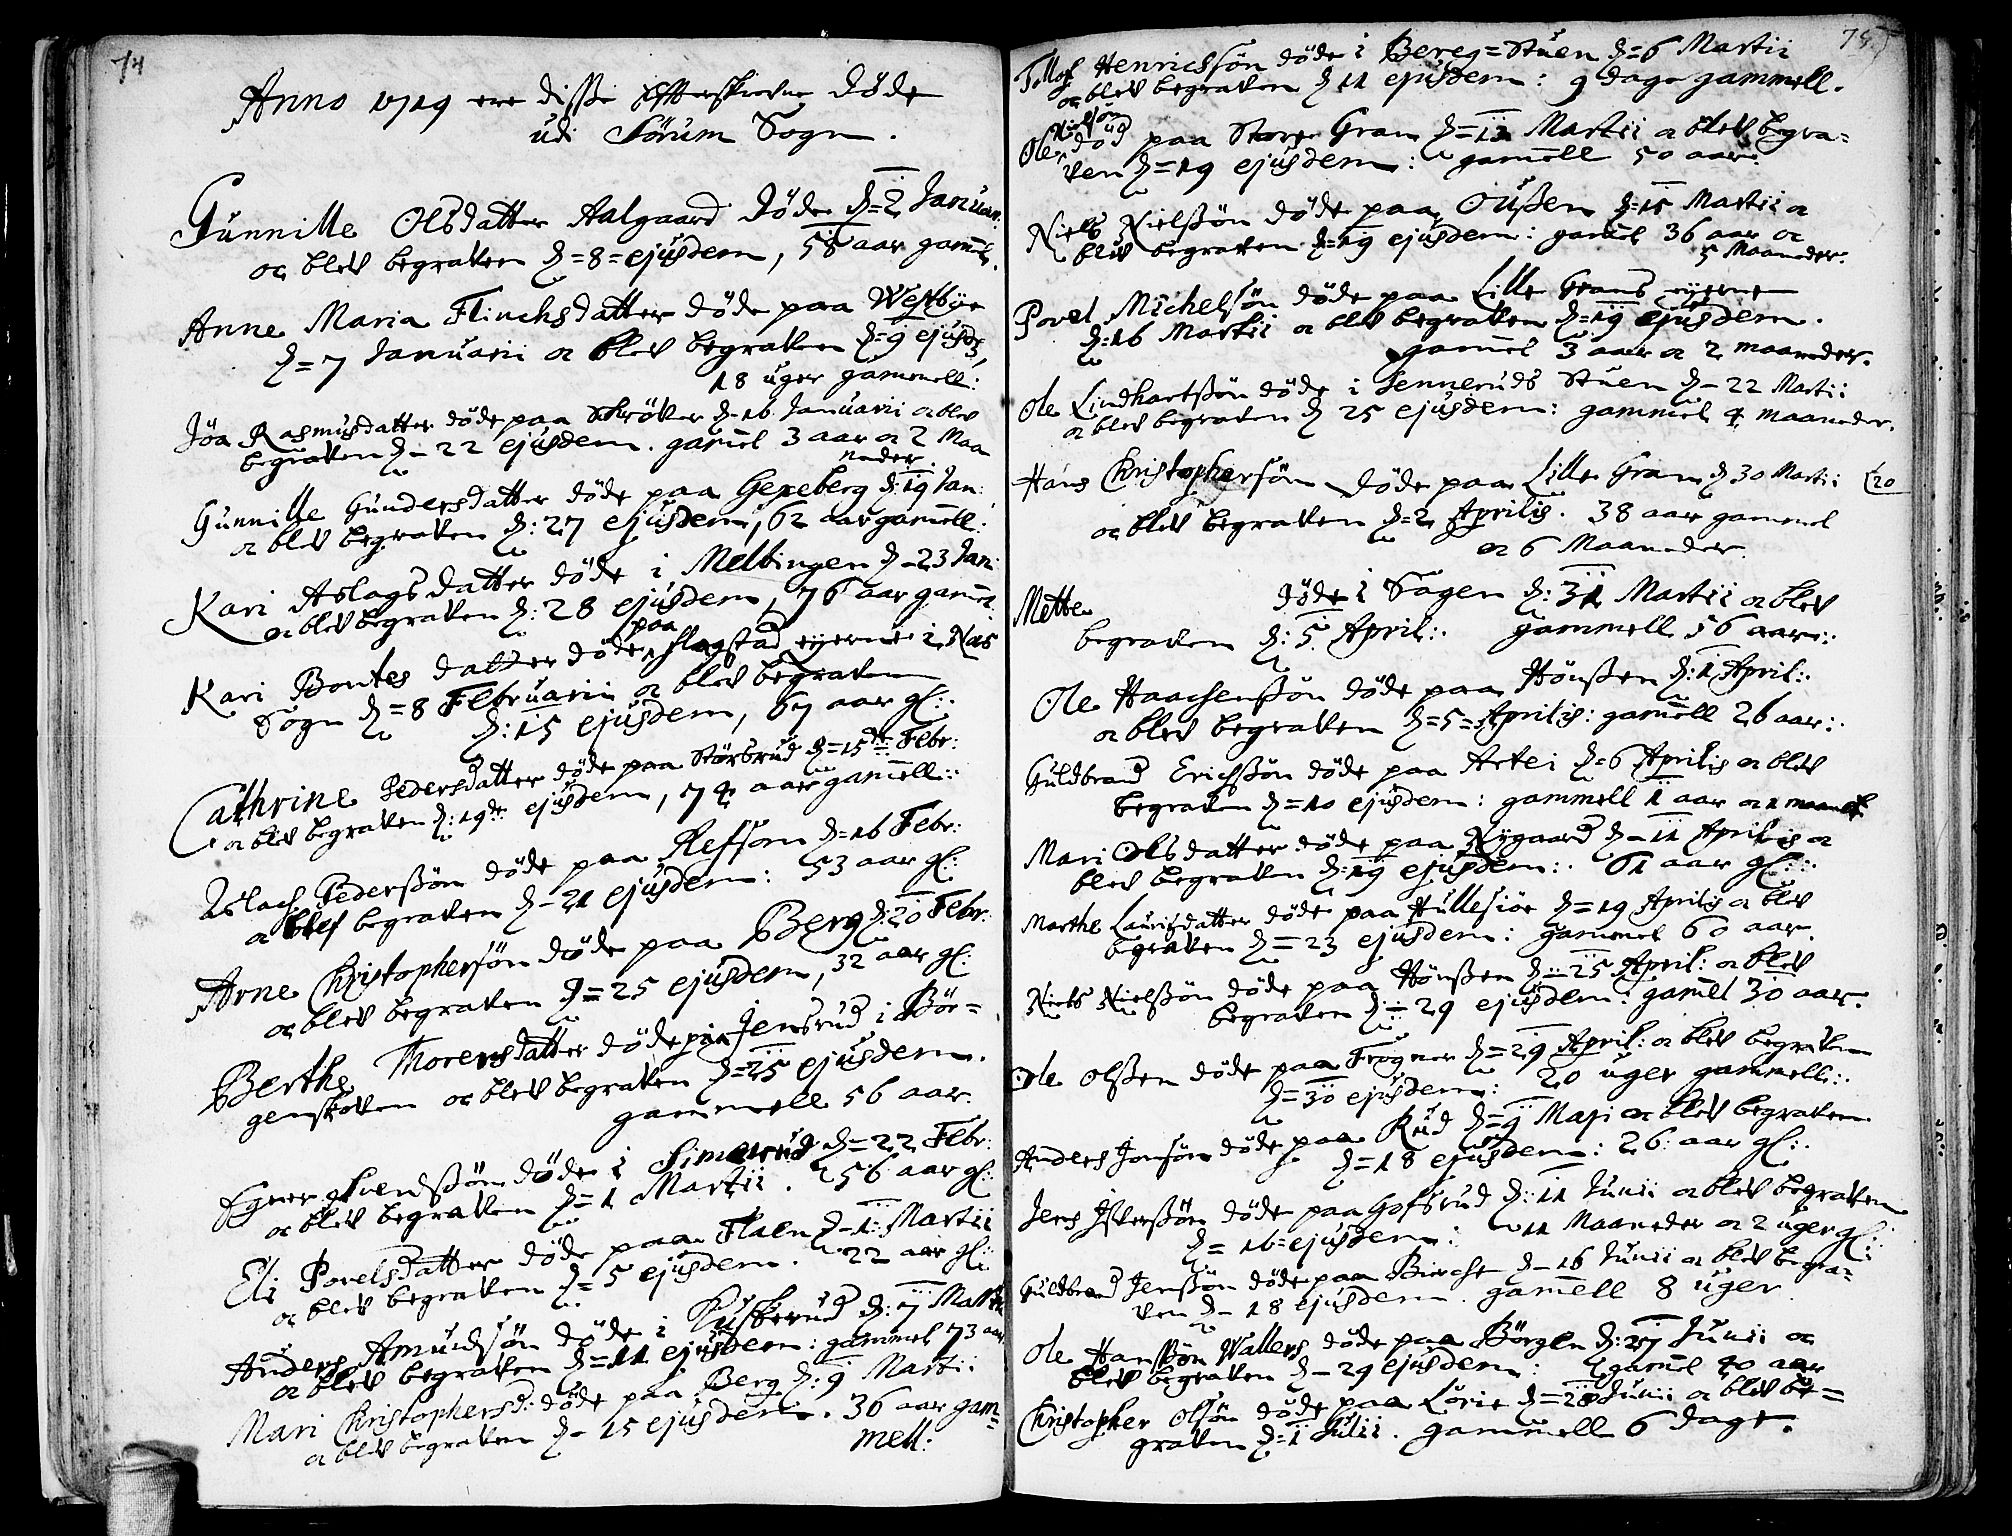 74
Anno 1719 ere disse Efterskrefne døde
udi Sørum Sogn.
Gunnille Olsdatter Aalgaard døde d=2 Januar:
oc blev begraven d=8=ejusdem, 58 aar gamel.
Anne Maria Flinchsdatter døde paa Westbye
d=7 Januarii oc blev begraven d=9 ejusd:,
18 uger gammell:
Jøa Rasmusdatter døde paa Skrøver d=16 Januarii oc blev
begraven d=22 ejusdem. gamel 3 aar oc 2 Maa
neder
Gunnille Gundersdatter døde paa Gexeberg d:19 Jan:
oc blev begraven d:27 ejusdem, 62 aar gamell:
Kari Aslagsdatter døde i Melbingen d=23 Jan:
oc blev begraven d:28 ejusdem, 76 aar gamel.
Kari Bontes datter døde paa Hogstad eyerne i Næs
Sogn d=8 Februarii oc blev begraven
d:15 ejusdem, 67 aar gl:.
Cathrine Pedersdatter døde paa Størbrud d=15de Febr:
oc blev begraven d:19de ejusdem, 74 aar gamell:
Aslach Pedersøn døde paa Refsom d=16 Febr:
oc blef begraven d=21 ejusdem: 53 aar gl:
Arne Christophersøn døde paa Berg d:20 Febr:
oc blev begraven d=25 ejusdem, 32 aar gl:
Berthe Thoresdatter døde paa Jensrud i Bør=
genskoven oc blev begraven d=25 ejusdem.
gammell 56 aar.
døde i Simerud d=22 Febr:
oc blev begraven d=1 Martii. 56 aar gl:
Eli Povelsdatter døde paa Flaen d=1: Martii
oc blev begraven d=5 ejusdem. 22 aar gl:
Anders Amundsøn døde i Kuskerud d:7 Martii
oc blev begraven d=11 ejusdem: gammel 73 aar
Mari Christophersd: døde paa Berg d:9 Martii
oc blev begraven d=15 ejusdem. 36 aar gam=
mell:
75
Tollof Henrichsøn døde i Bereg=Stuen d=6 Martii
oc blev begraven d 11 ejusdem: 9 dage gammell.
Ole Nielsøn død paa Store Gran d=12 Martii oc blev begra=
ven d=19 ejusdem: gamell 50 aar:
Niels Nielsøn døde paa Oussen d=15 Martii oc
blev begraven d=19 ejusdem: gamel 36 aar oc
5 Maaneder.
Povel Michelsøn døde paa Lille Grans eyerne
d:16 Martii oc blev begraven d=19 ejusdem.
gamel 3 aar oc 2 maaneder.
Ole Lindhartsøn døde i Jenneruds Stuen d=22 Martii
oc blev begraven d 25 ejusdem: gammel 4 maaneder.
Hans Christophersøn døde paa Lille Gran d 30 Martii 20
oc blev begraven d=2 Aprilis. 38 aar gammel
oc 6 Maaneder.
Mette døde i Sagen d:31 Martii oc blev
begraven d:5 April:. gammell 56 aar:
Ole Haachensøn døde paa Hønssen d:1 April:.
oc blev begraven d=5=Aprilis: gamell 26 aar:.
Guldbrand Erichsøn døde paa Artei d=6 Aprilis oc blev
begraven d=10 ejusdem: gammell 1 aar oc 1 maanet
Mari Olsdatter døde paa Nygaard d=11 Aprilis oc
blev begraven d:19 ejusdem:. 61 aar gl:.
Marthe Lauritsdatter døde paa Hullesiøe d=19 Aprilis oc blev
begraven d=23 ejusdem: gammel 60 aar.
Niels Nielsøn døde paa Hønssen d=25 April: oc blev
begraven d=29 ejusdem: gamel 30 aar.
Ole Olssen døde paa Frogner d=29 April: oc blev begraven
d=30 ejusdem: 20 uger gammell:.
Anders Jonsøn døde paa Rud d=9 Maji oc blev begraven
d=18 ejusdem: 26 aar gl:.
Jens Iversøn døde paa Gofsrud d:11 Junii oc blev begraven
d=16=ejusdem: 11 Maaneder oc 2 uger gl:
Guldbrand Jensøn døde paa Birche d=16 Junii oc blev begra=
ven d=18 ejusdem. gamell 8 uger
Ole Hansøn Wallers døde paa Børgen d:27 Junii oc
blev begraven d=29 ejusdem: gamel 40 aar
Christopher Olsøn døde paa Lørie d=28 Junii oc blev be=
graven d=1 Julii. gammell 6 dage.